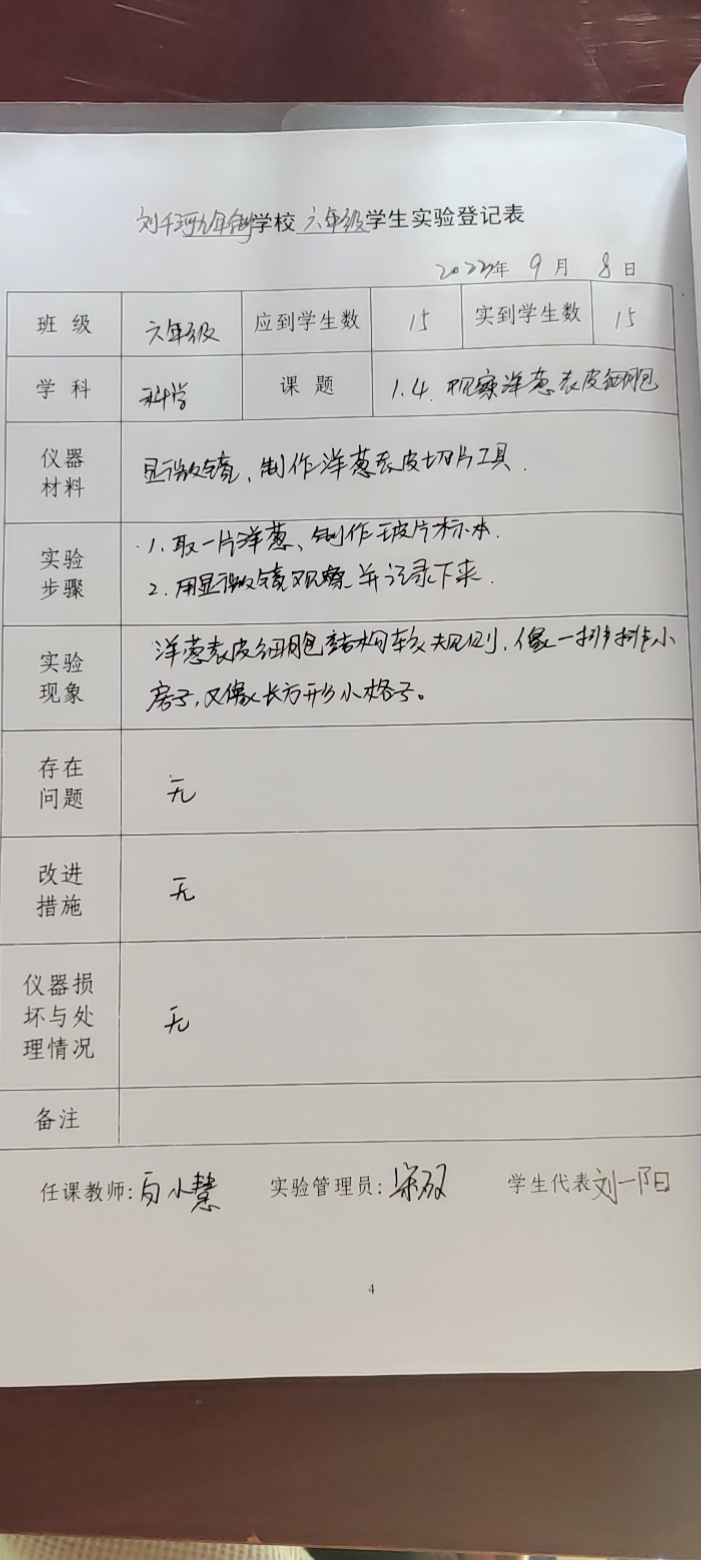 刘千河九年制学校六年级学生实验登记表
2023年 9 月 8 日
班 级 六年级 应到学生数 15 实到学生数 15
学 科 科学 课 题 1.4. 观察洋葱表皮细胞
仪器
材料
显微镜、制作洋葱表皮切片工具.
实验
步骤
1. 取一片洋葱、制作玻片标本.
2. 用显微镜观察并记录下来.
实验
现象
洋葱表皮细胞结构较规则,像一排排小
房子,又像长方形小格子。
存在
问题
无
改进
措施
无
仪器损
坏与处
理情况
无
备注
任课教师: 小慧 实验管理员: 宋双 学生代表 刘一阳
4